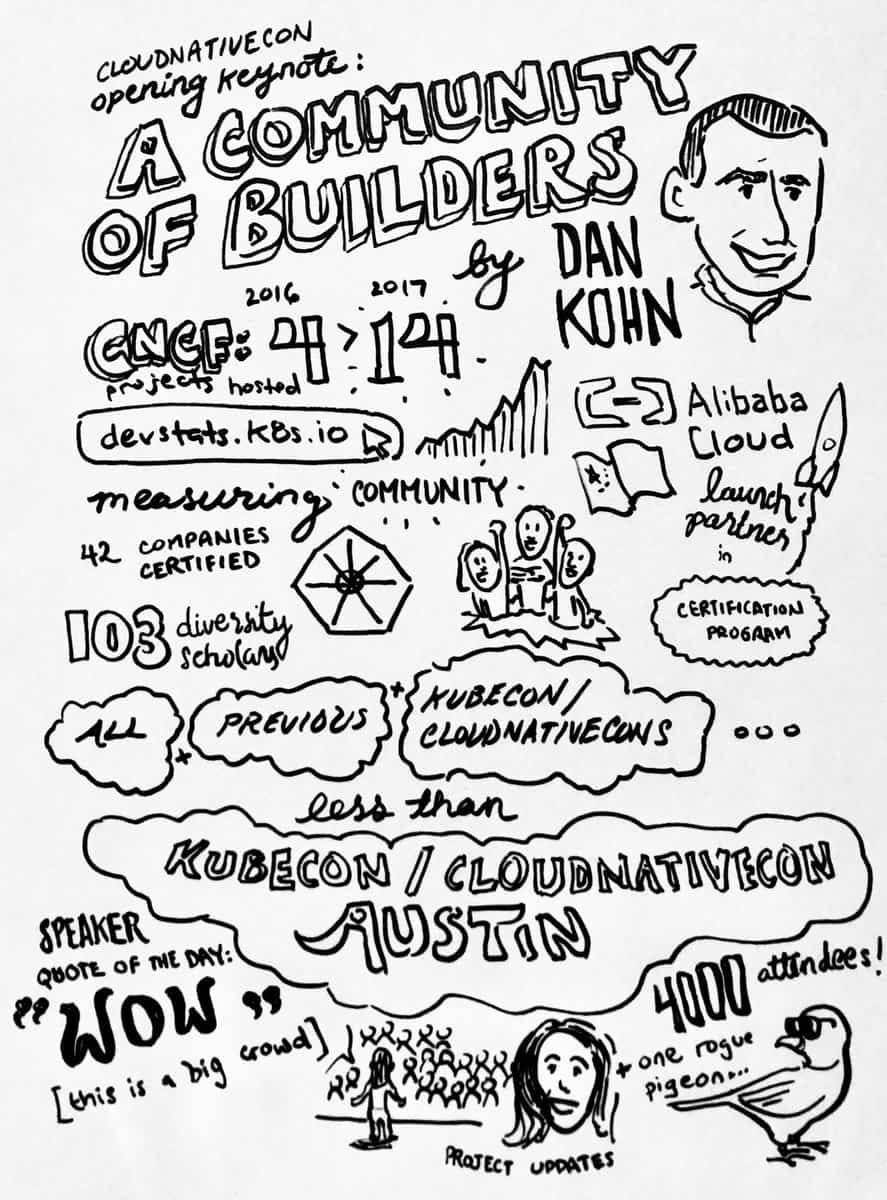 CLOUDNATIVECON
opening keynote:
A COMMUNITY
OF BUILDERS
by DAN
KOHN
2016 2017
CNCF: 4 > 14
projects hosted
devstats.k8s.io
Alibaba
Cloud
launch
partner
in
CERTIFICATION
PROGRAM
measuring COMMUNITY
42 COMPANIES
CERTIFIED
103 diversity
scholars
ALL + PREVIOUS + KUBECON /
CLOUDNATIVECONS
less than
KUBECON / CLOUDNATIVECON
AUSTIN
SPEAKER
QUOTE OF THE DAY:
"WOW"
[this is a big crowd]
4000 attendees!
+ one rogue
pigeon...
PROJECT UPDATES